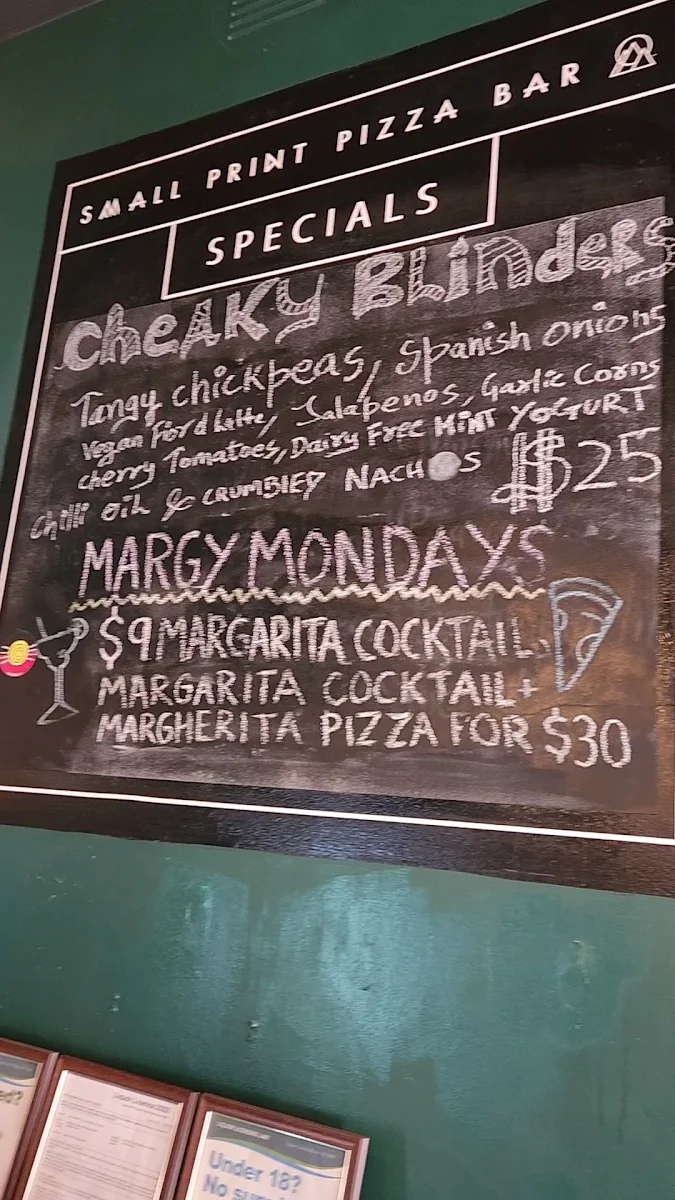 SMALL PRINT PIZZA BAR
SPECIALS
CHEAKY BLINDERS
Tangy chickpeas, Spanish onions
Vegan Fiord latte, Jalapenos, Garlic Corns
cherry Tomatoes, Dairy Free MINT YOGURT
Chilli oil & CRUMBIED NACHOS $25
MARGY MONDAYS
$9 MARGARITA COCKTAIL
MARGARITA COCKTAIL +
MARGHERITA PIZZA FOR $30
Under 18?